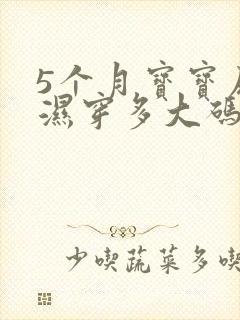 5个月寶寶
濕穿多大碼
少喫蔬菜多喫